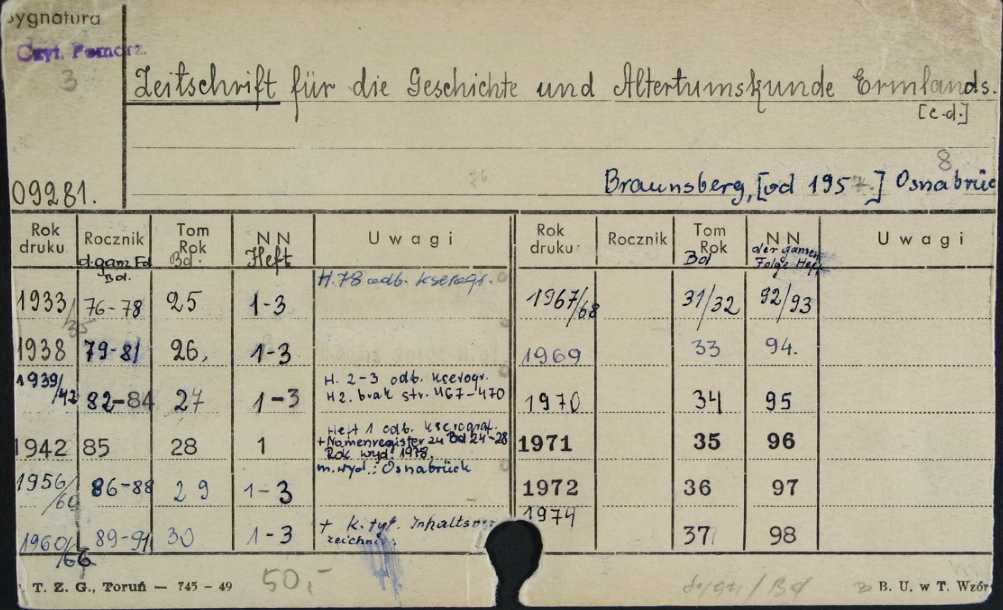 Sygnatura
Czyt. Pomorz.
3
Zeitschrift für die Geschichte und Altertumskunde Ermlands.
[c.d.]
8
Braunsberg, [od 1957] Osnabrüc
09281.
Rok druku Rocznik Tom Rok N N Uwagi Rok druku Rocznik Tom Rok N N Uwagi
d. ganz Fd Bd. Bd. Heft Bd der ganzen Folge Heft
1933/35 76-78 25 1-3 H. 78 odb. kserogr. 1967/68 31/32 92/93
1938 79-81 26, 1-3 1969 33 94.
1939/42 82-84 27 1-3 H. 2-3 odb. kserogr. 1970 34 95
H2. brak str. 467-470
1942 85 28 1 Heft 1 odb. kserograf. 1971 35 96
+ Namenregister zu Bd 24-28
Rok wyd. 1978,
m. wyd.: Osnabrück
1956/60 86-88 29 1-3 1972 36 97
1960/66 89-91 30 1-3 + k. tyt. Inhaltsver 1974 37 98
zeichnis
T. Z. G., Toruń — 745 - 49 50,- B. U. w T. Wzór